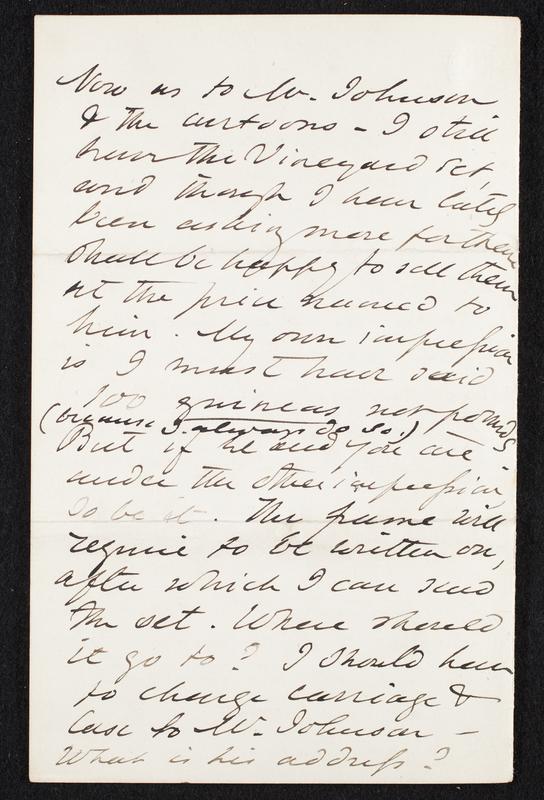 Now as to Mr. Johnson
& the cartoons – I still
have the Vineyard set,
and though I have lately
been asking more for them
shall be happy to sell them
at the price named to
him. My own impression
is I must have said
100 guineas not pounds
(because I always do so.)
But if he and you are
under the other impression,
so be it. The frame will
require to be written on,
after which I can send
the set. Where should
it go to? I should have
to charge carriage &
Case to Mr. Johnson –
What is his address?